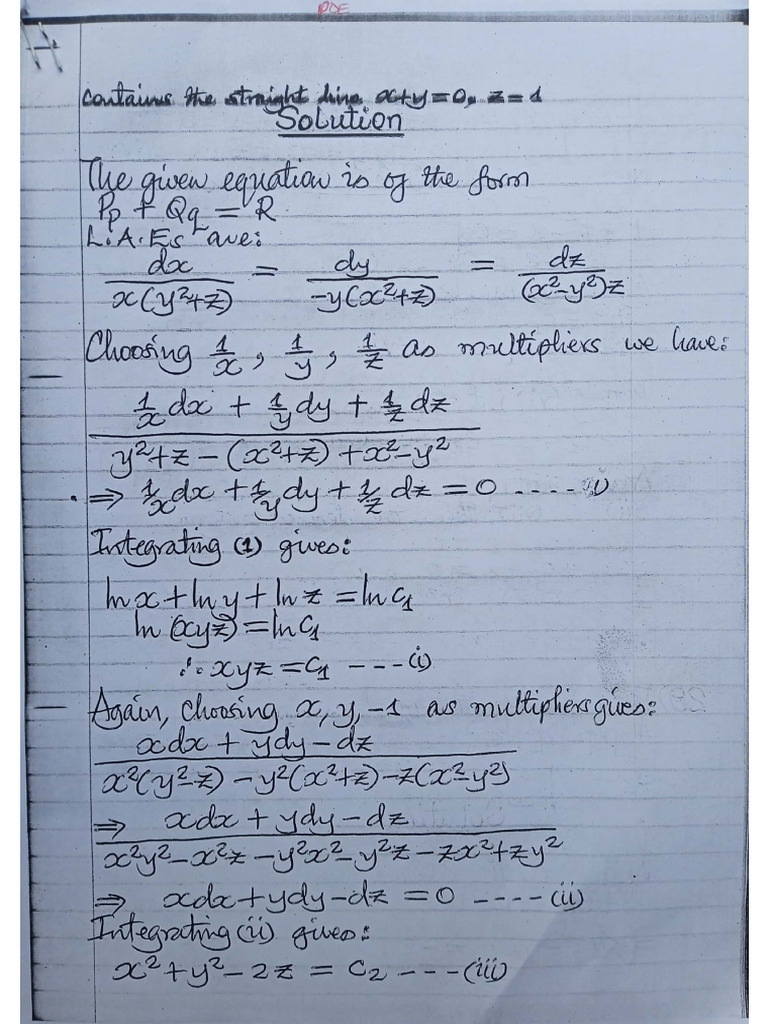 PDE
contains the straight line x+y=0, z=1
Solution
The given equation is of the form
Pp + Qq = R
L.A.Es are:
dx/x(y²+z) = dy/-y(x²+z) = dz/(x²-y²)z
Choosing 1/x, 1/y, 1/z as multipliers we have:
1/x dx + 1/y dy + 1/z dz
y²+z-(x²+z)+x²-y²
⇒ 1/x dx + 1/y dy + 1/z dz = 0 ---- i)
Integrating (1) gives:
ln x + ln y + ln z = ln c₁
ln (xyz) = ln C₁
∴ xyz = C₁ --- (i)
Again, choosing x, y, -1 as multipliers gives:
xdx + ydy - dz
x²(y²-z) - y²(x²+z) - z(x²-y²)
⇒ xdx + ydy - dz
x²y² - x²z - y²x² - y²z - zx² + zy²
⇒ xdx + ydy - dz = 0 ---- (ii)
Integrating (ii) gives:
x² + y² - 2z = C₂ --- (iii)